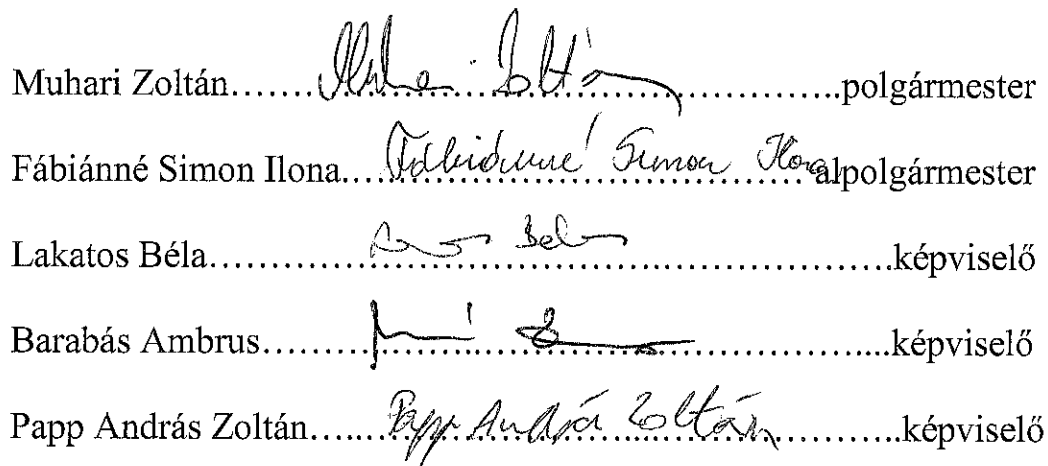 Muhari Zoltán.......Muhari Zoltán.......polgármester
Fábiánné Simon Ilona.....Fábiánné Simon Ilona.....alpolgármester
Lakatos Béla.......Béla.......képviselő
Barabás Ambrus..............képviselő
Papp András Zoltán......Papp András Zoltán......képviselő